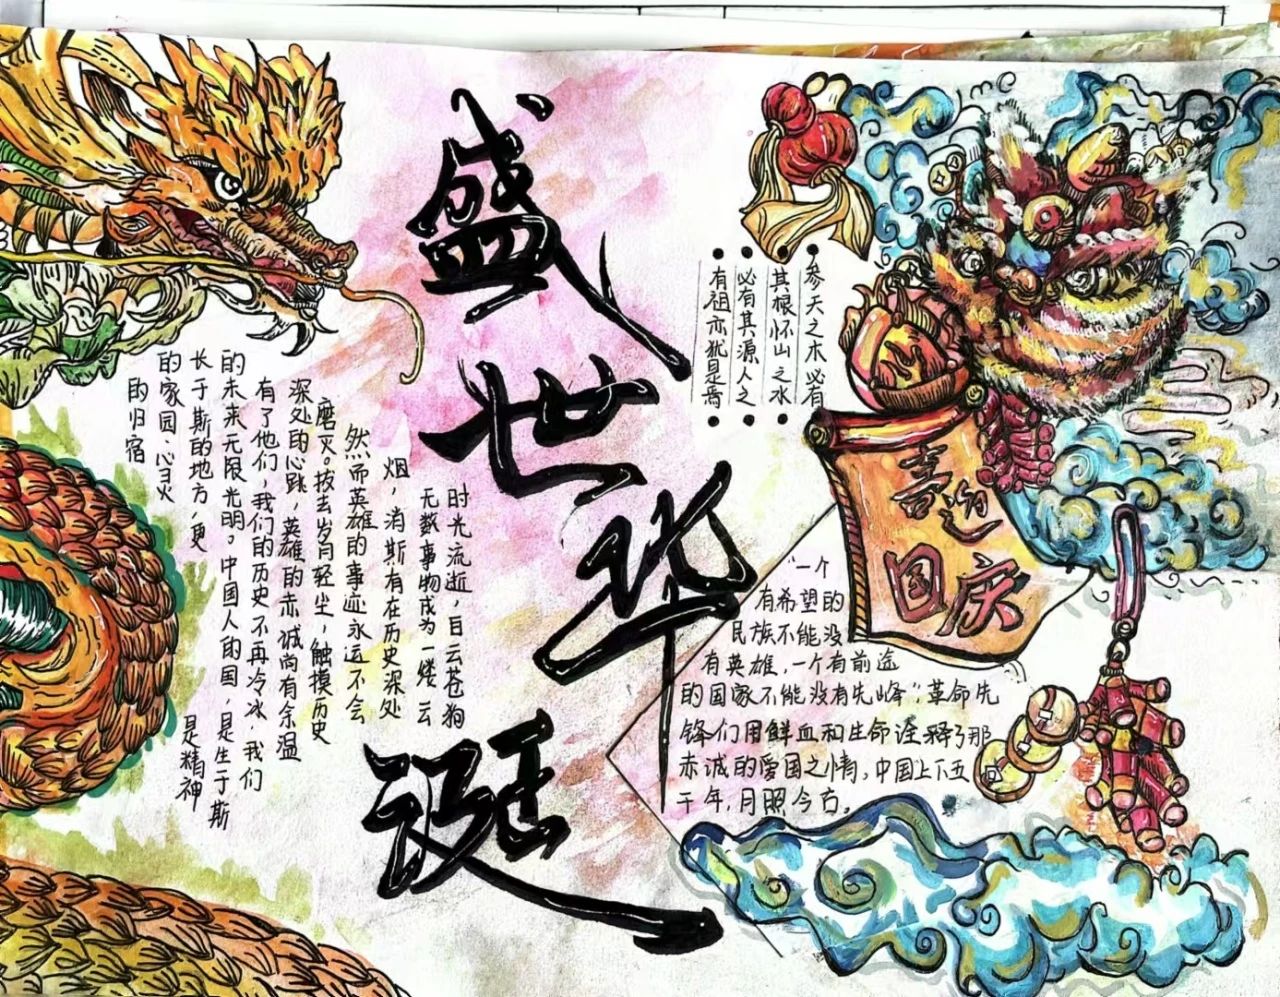 盛世华诞
参天之木必有
其根怀山之水
必有其源人之
有祖亦犹是焉
喜迎
国庆
“一个
有希望的
民族不能没
有英雄，一个有前途
的国家不能没有先峰”革命先
锋们用鲜血和生命诠释了那
赤诚的爱国之情，中国上下五
千年，月照今古。
时光流逝，自云苍狗
无数事物成为一缕云
烟，消斯有在历史深处
然而英雄的事迹永远不会
磨灭。拔去岁月轻尘，触摸历史
深处的心跳，英雄的赤诚尚有余温
有了他们，我们的历史不再冷冰，我们
的未来无限光明。中国人的国，是生于斯
长于斯的地方，更是精神
的家园，心灵
的归宿